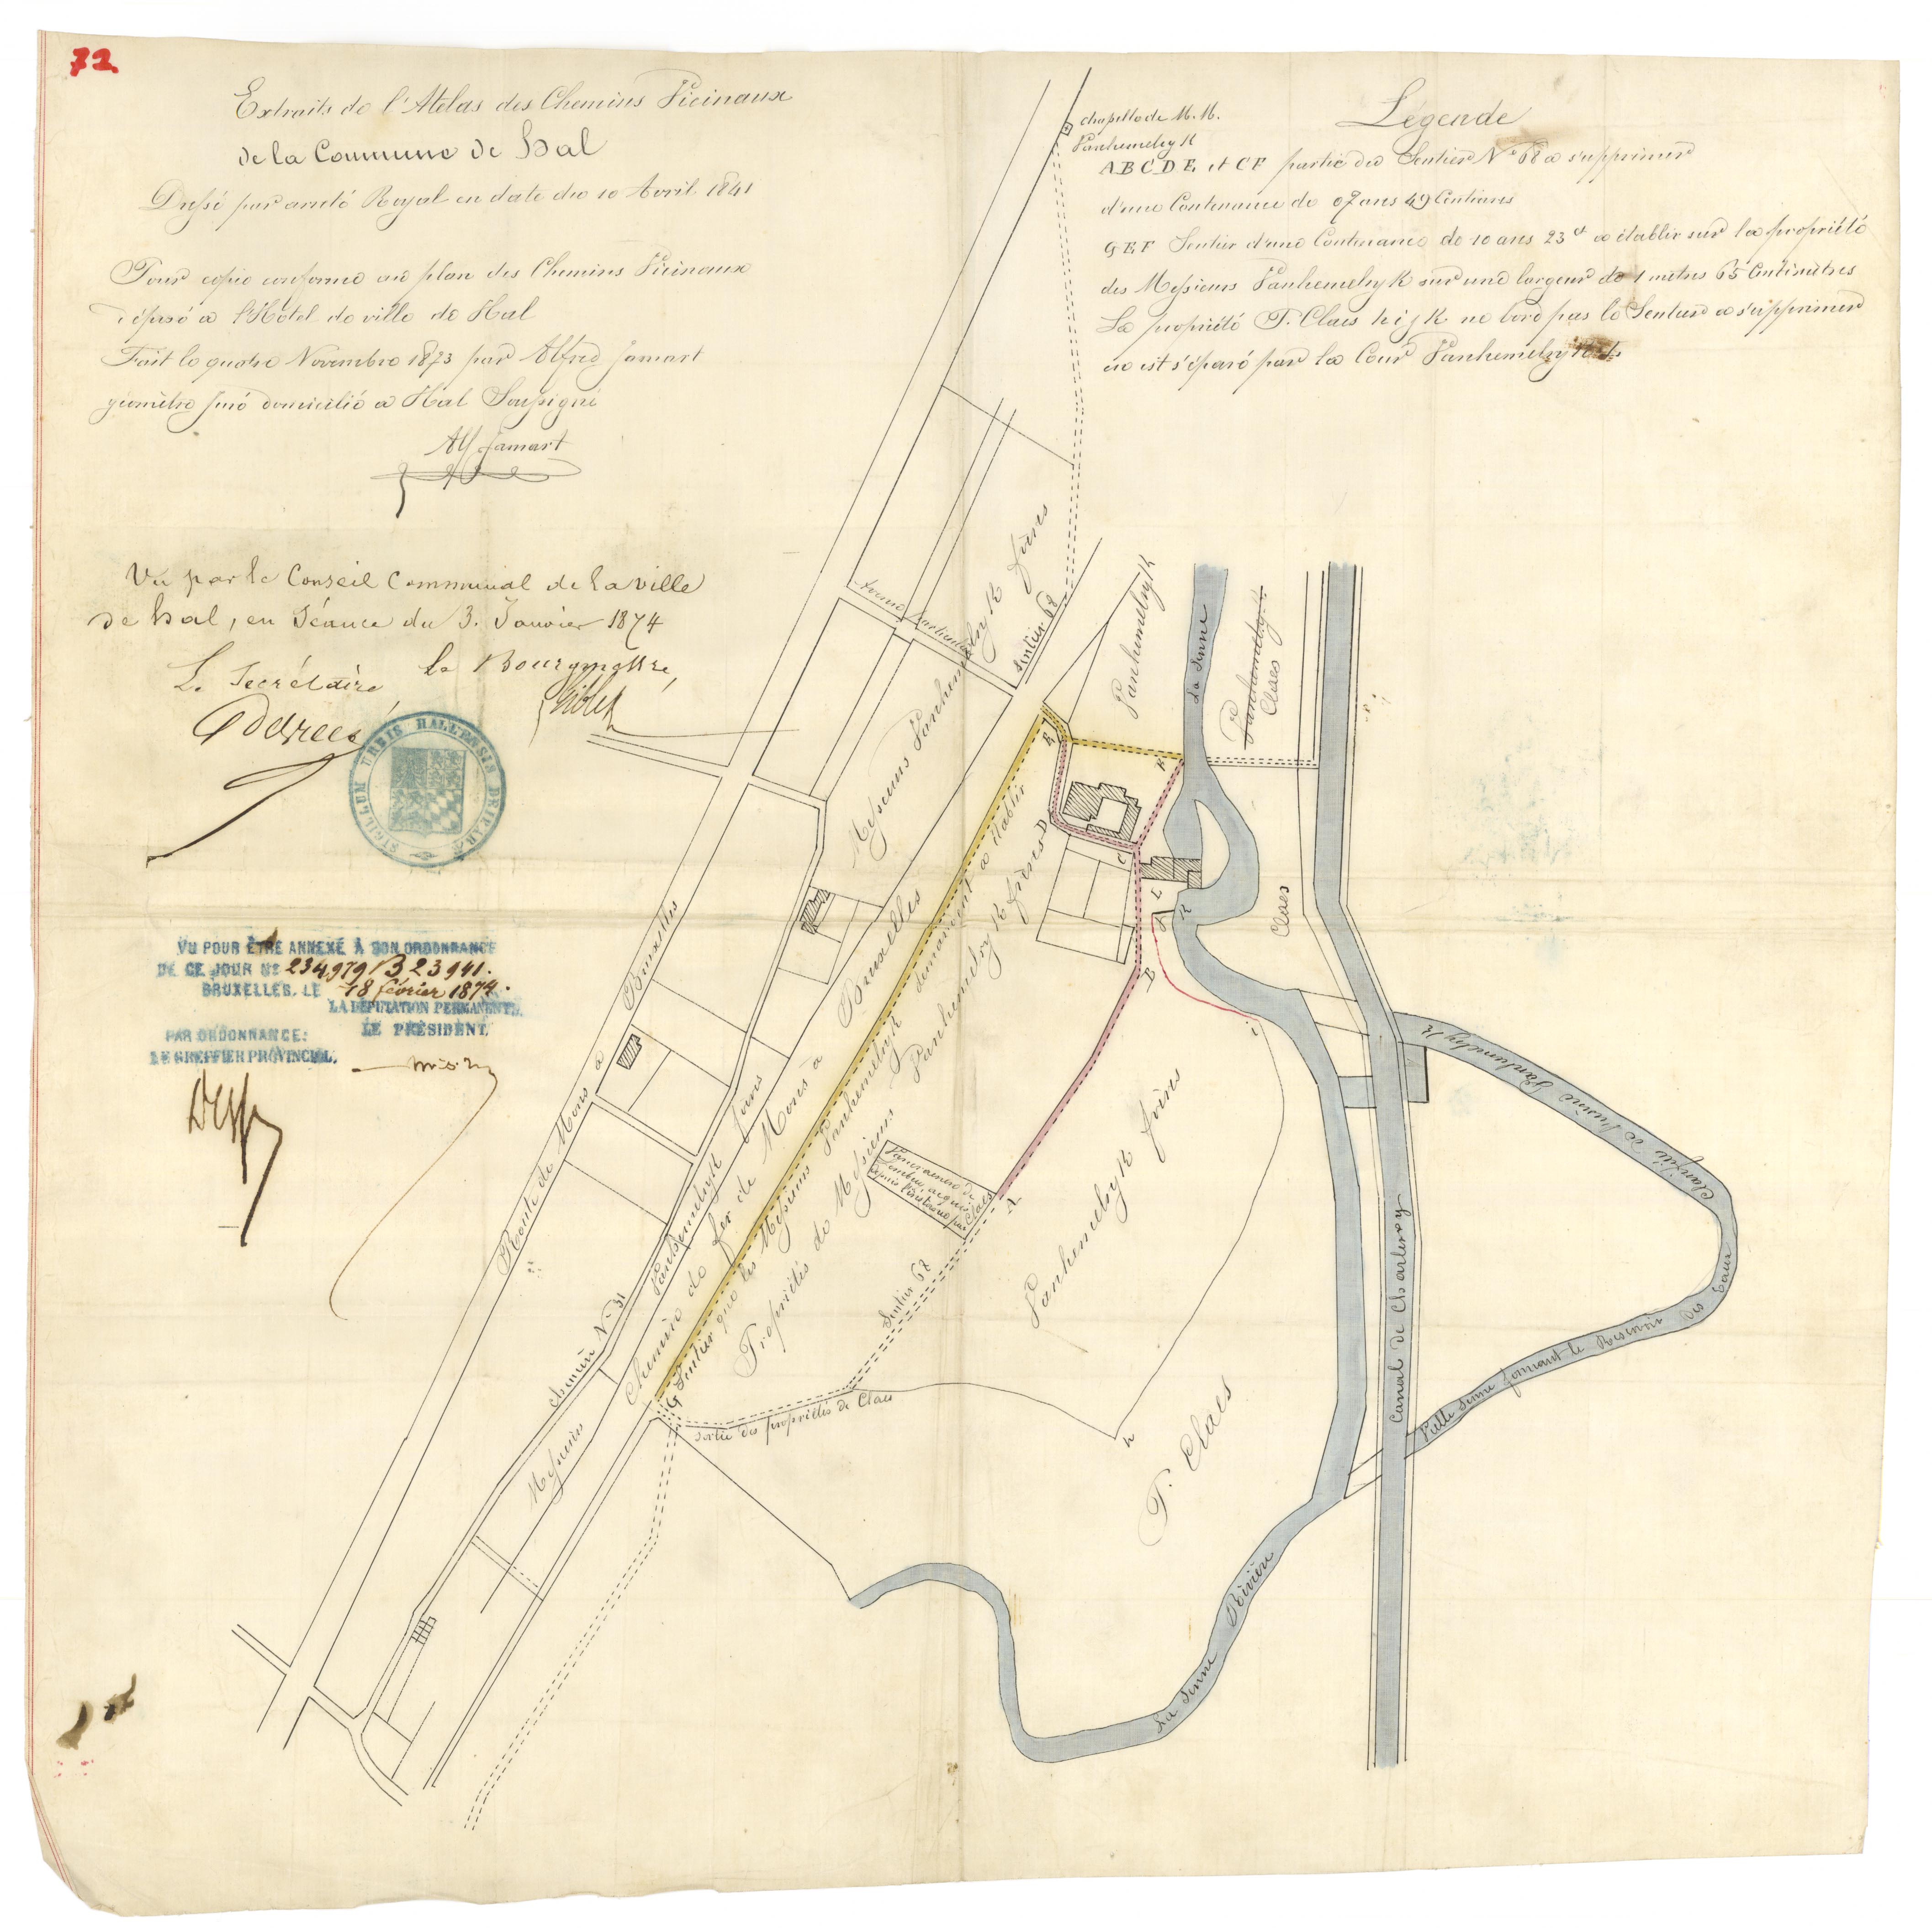 72
Extraits de l'Atelas des Chemins Vicinaux
de la Commune de Hal
Dressé par arreté Royal en date du 10 Avril 1841
Pour copie conforme au plan des Chemins Vicinaux
déposé a l'Hôtel de ville de Hal
Fait le quatre Novembre 1873 par Alfred Jamart
géomètre juré domicilié a Hal Soussigné
Alf Jamart
Vu par le Conseil Communal de la ville
de Hal, en Séance du 3. Janvier 1874
Le Secrétaire,
le Bourgmestre,
SIGILLUM URBIS HALLENSIS
VU POUR ÊTRE ANNEXÉ À SON ORDONNANCE
DE CE JOUR No 234979/B 23941.
BRUXELLES, LE 18 février 1874.
LA DÉPUTATION PERMANENTE,
LE PRÉSIDENT,
PAR ORDONNANCE:
LE GREFFIER PROVINCIAL,
chapelle de M. M.
Vanhemelryk
Légende
A B C D E et C F partie du Sentier No 68 a supprimer
d'une Contenance de 07 ans 49 Centiares
G E F Sentier d'une Contenance de 10 ans 23 ct a établir sur la propriété
des Messieurs Vanhemelryk sur une largeur de 1 mètres 65 Centimètres
La propriété P. Claes h i j k ne bord pas le Sentier a supprimer
en est séparé par la Cour Vanhemelryk
Sentier 68
Messieurs Vanhemelryk frères
Vanhemelryk
La Senne
Vanhemelryk
Claes
Claes
E
F
D
C
L
J
K
B
i
A
h
G
Route de Mons a Bruxelles
Chemin de fer de Mons a Bruxelles
chemin No 31
Messieurs Vanhemelryk frères
Sentier que les Messieurs Vanhemelryk demandent a établir
Propriétés de Messieurs Vanhemelryk frères
Claes
Sentier 68
sortie des propriétés de Claes
Vanhemelryk frères
P. Claes
La Senne Rivière
Canal de Charleroy
Vielle Senne formant le Reservoir des Eaux
Vanhemelryk